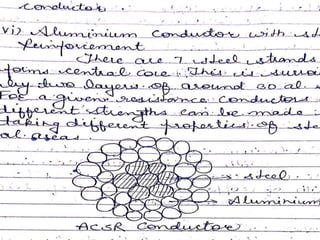 conductor.
vi) Aluminium Conductor with
Reinforcement
There are 7 steel strands
forms central core. This is
by two layers of around 30 al
For a given resistance conductors
different strengths can be made
taking different properties of
al areas
steel
Aluminium
ACSR Conductor